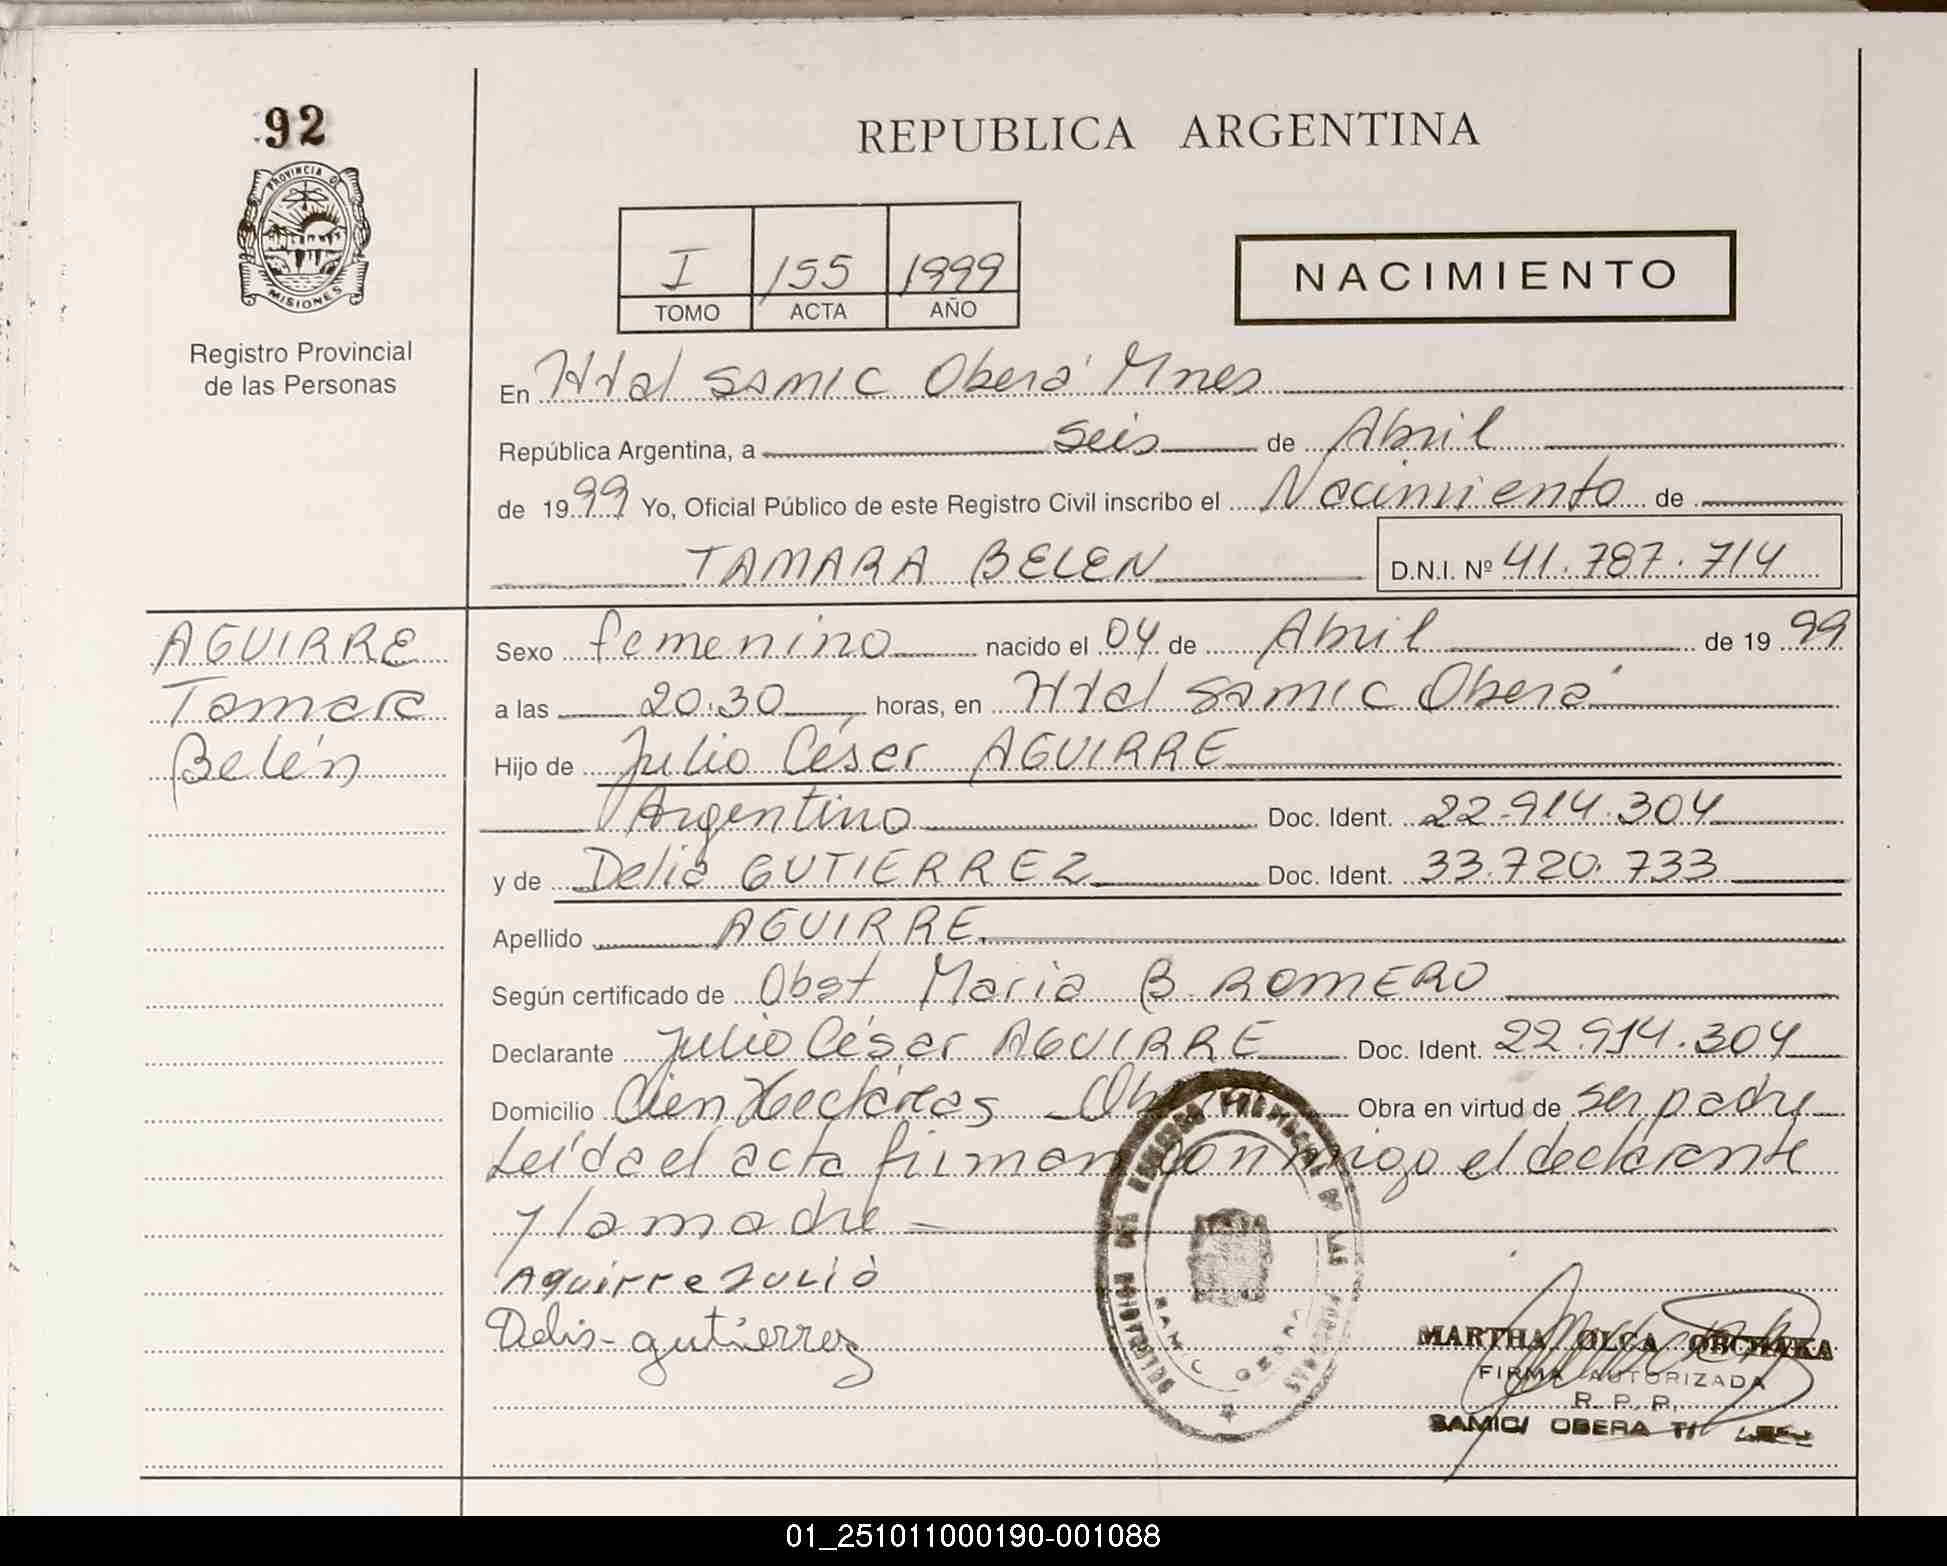 92
REPUBLICA ARGENTINA
PROVINCIA DE
MISIONES
Registro Provincial
de las Personas
I 155 1999
TOMO ACTA AÑO
NACIMIENTO
En Htal SAMIC Oberá Mnes
República Argentina, a seis de Abril
de 1999 Yo, Oficial Público de este Registro Civil inscribo el Nacimiento de
TAMARA BELEN D.N.I. Nº 41.787.714
AGUIRRE
Tamara
Belén
Sexo femenino nacido el 04 de Abril de 1999
a las 20:30 horas, en Htal SAMIC Oberá
Hijo de Julio César AGUIRRE
Argentino Doc. Ident. 22.914.304
y de Delia GUTIERREZ Doc. Ident. 33.720.733
Apellido AGUIRRE
Según certificado de Obst Maria B. ROMERO
Declarante Julio César AGUIRRE Doc. Ident. 22.914.304
Domicilio Cien Hectáreas - Obera Obra en virtud de ser padre
Leída el acta firman conmigo el declarante
y la madre
Aguirre Julio
Delia-gutierrez
DELEGACION DEL REGISTRO PROVINCIAL DE LAS PERSONAS
SAMIC OBERA
MARTHA OLGA
FIRMA AUTORIZADA
R. P. P.
SAMIC/ OBERA
01_251011000190-001088